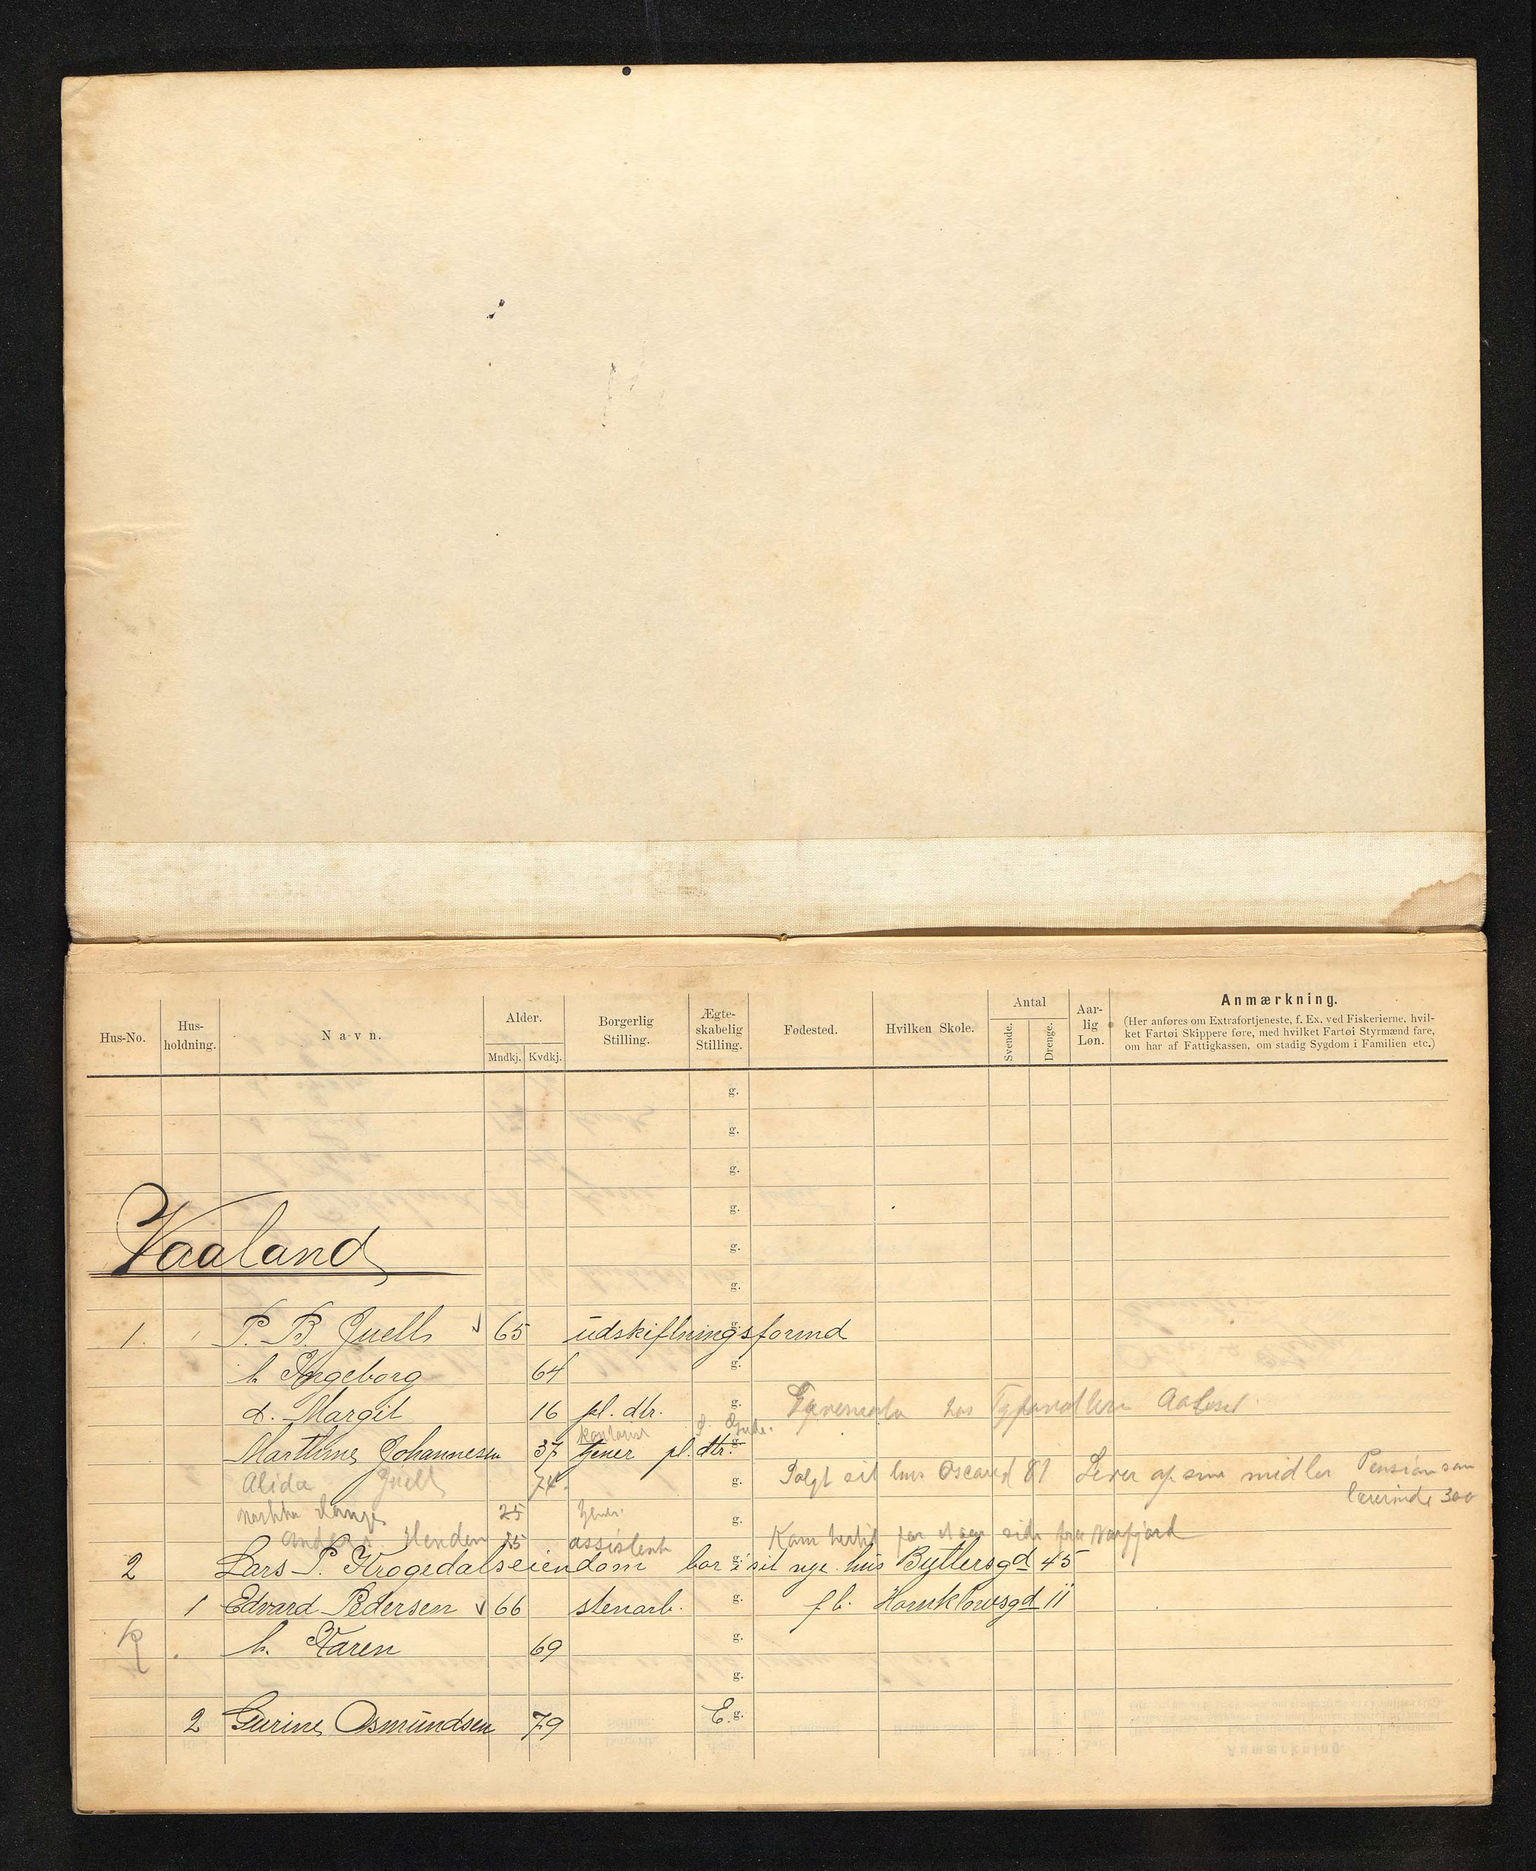 Hus-No. Hus-holdning. Navn. Alder. Mndkj. Kvdkj. Borgerlig Stilling. Ægte-skabelig Stilling. Fødested. Hvilken Skole. Antal Svende. Drenge. Aar-lig Løn. Anmærkning.
(Her anføres om Extrafortjeneste, f. Ex. ved Fiskerierne, hvil-
ket Fartøi Skippere føre, med hvilket Fartøi Styrmænd fare,
om har af Fattigkassen, om stadig Sygdom i Familien etc.)
g.
g.
g.
g.
Vaaland g.
g.
1. 1 P. B. Juell 65 udskiftningsformd g.
h. Ingeborg 64 g.
d. Margit 16 pl. dtr. g. hos
Marthine Johannesen 37 tjener pl. dtr. g.
Alida Juell 74. g. Solgt sit hus Oscarsgd 81 Lever af sine midler Pension som
lærerinde 300
25 tjener g.
Anders Henden 25 assistent Kom hertil for siden fra
2 Lars P. Krogedals eiendom bor i sit nye hus Bytlersgd 45 g.
1 Edvard Pedersen 66 stenarb. g. f b. Hornklovesgd 11
h. Karen 69 g.
g.
2 Gurine Osmundsen 79 E. g.